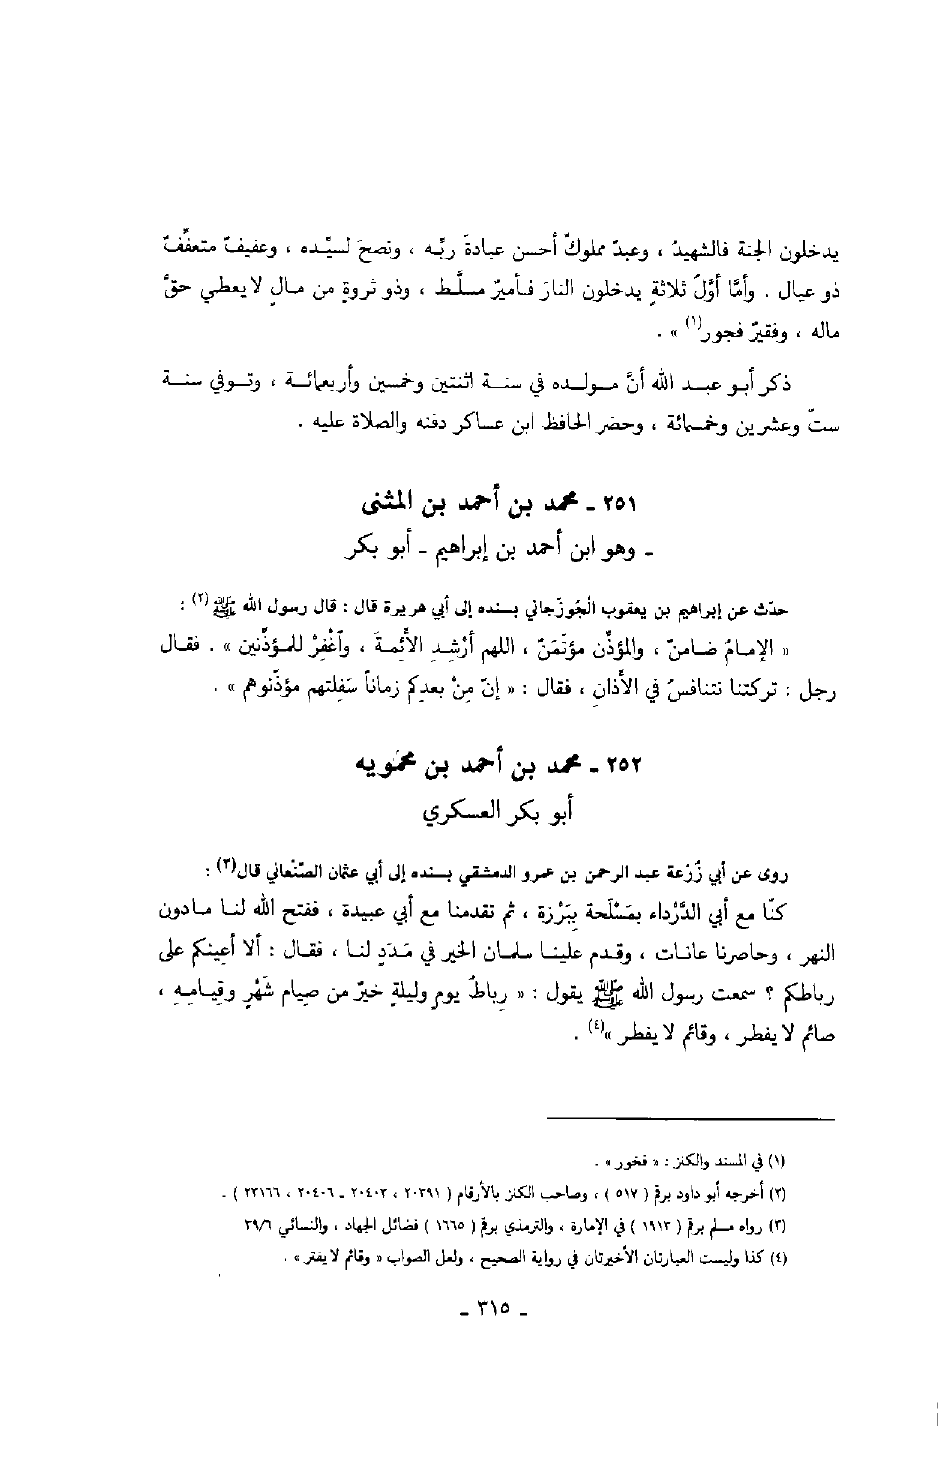 يدخلون الجنة فالشهيدُ ، وعبدٌ مملوكٌ أحسن عبادةَ ربِّه ، ونصحَ لسيِّده ، وعفيفٌ متعفِّفٌ
ذو عيال . وأمَّا أوَّلُ ثلاثةٍ يدخلون النارَ فأميرٌ مسلَّط ، وذو ثروةٍ من مالٍ لا يعطي حقَّ
ماله ، وفقيرٌ فجور(١) » .
ذكر أبو عبد الله أنَّ مولده في سنة اثنتين وخمسين وأربعمائة ، وتوفي سنة
ستّ وعشرين وخمسمائة ، وحضر الحافظ ابن عساكر دفنه والصلاة عليه .
٢٥١ ـ محمد بن أحمد بن المثنى
ـ وهو ابن أحمد بن إبراهيم ـ أبو بكر
حدّث عن إبراهيم بن يعقوب الجُوزَجاني بسنده إلى أبي هريرة قال : قال رسول الله ﷺ(٢) :
« الإمامُ ضامنٌ ، والمؤذّن مؤتَمَنٌ ، اللهم أَرْشِدِ الأَئِمةَ ، وآغْفِرْ للمؤذِّنين » . فقال
رجل : تركتنا نتنافسُ في الأذانِ ، فقال : « إنّ مِنْ بعدِكم زماناً سَفِلتهم مؤذّنوهم » .
٢٥٢ ـ محمد بن أحمد بن محمَويه
أبو بكر العسكري
روى عن أبي زُرْعة عبد الرحمن بن عمرو الدمشقي بسنده إلى أبي عثمان الصّنْعاني قال(٣) :
كنّا مع أبي الدَّرْداء بمَسْلَحة بِبَرْزة ، ثم تقدمنا مع أبي عبيدة ، ففتح الله لنا مادون
النهر ، وحاصرنا عانات ، وقدم علينا سلمان الخير في مَدَدٍ لنا ، فقال : ألا أُعينكم على
رباطكم ؟ سمعت رسول الله ﷺ يقول : « رِباطُ يومٍ وليلةٍ خيرٌ من صيام شَهْرٍ وقيامِه ،
صائم لا يفطر ، وقائم لا يفطر »(٤) .
(١) في المسند والكنز : « فخور » .
(٢) أخرجه أبو داود برقم ( ٥١٧ ) ، وصاحب الكنز بالأرقام ( ٢٠٣٩١ ، ٢٠٤٠٣ ـ ٢٠٤٠٦ ، ٢٣١٦٦ ) .
(٣) رواه مسلم برقم ( ١٩١٣ ) في الإمارة ، والترمذي برقم ( ١٦٦٥ ) فضائل الجهاد ، والنسائي ٣٩/٦
(٤) كذا وليست العبارتان الأخيرتان في رواية الصحيح ، ولعل الصواب « وقائم لا يفتر » .
ـ ٣١٥ ـ